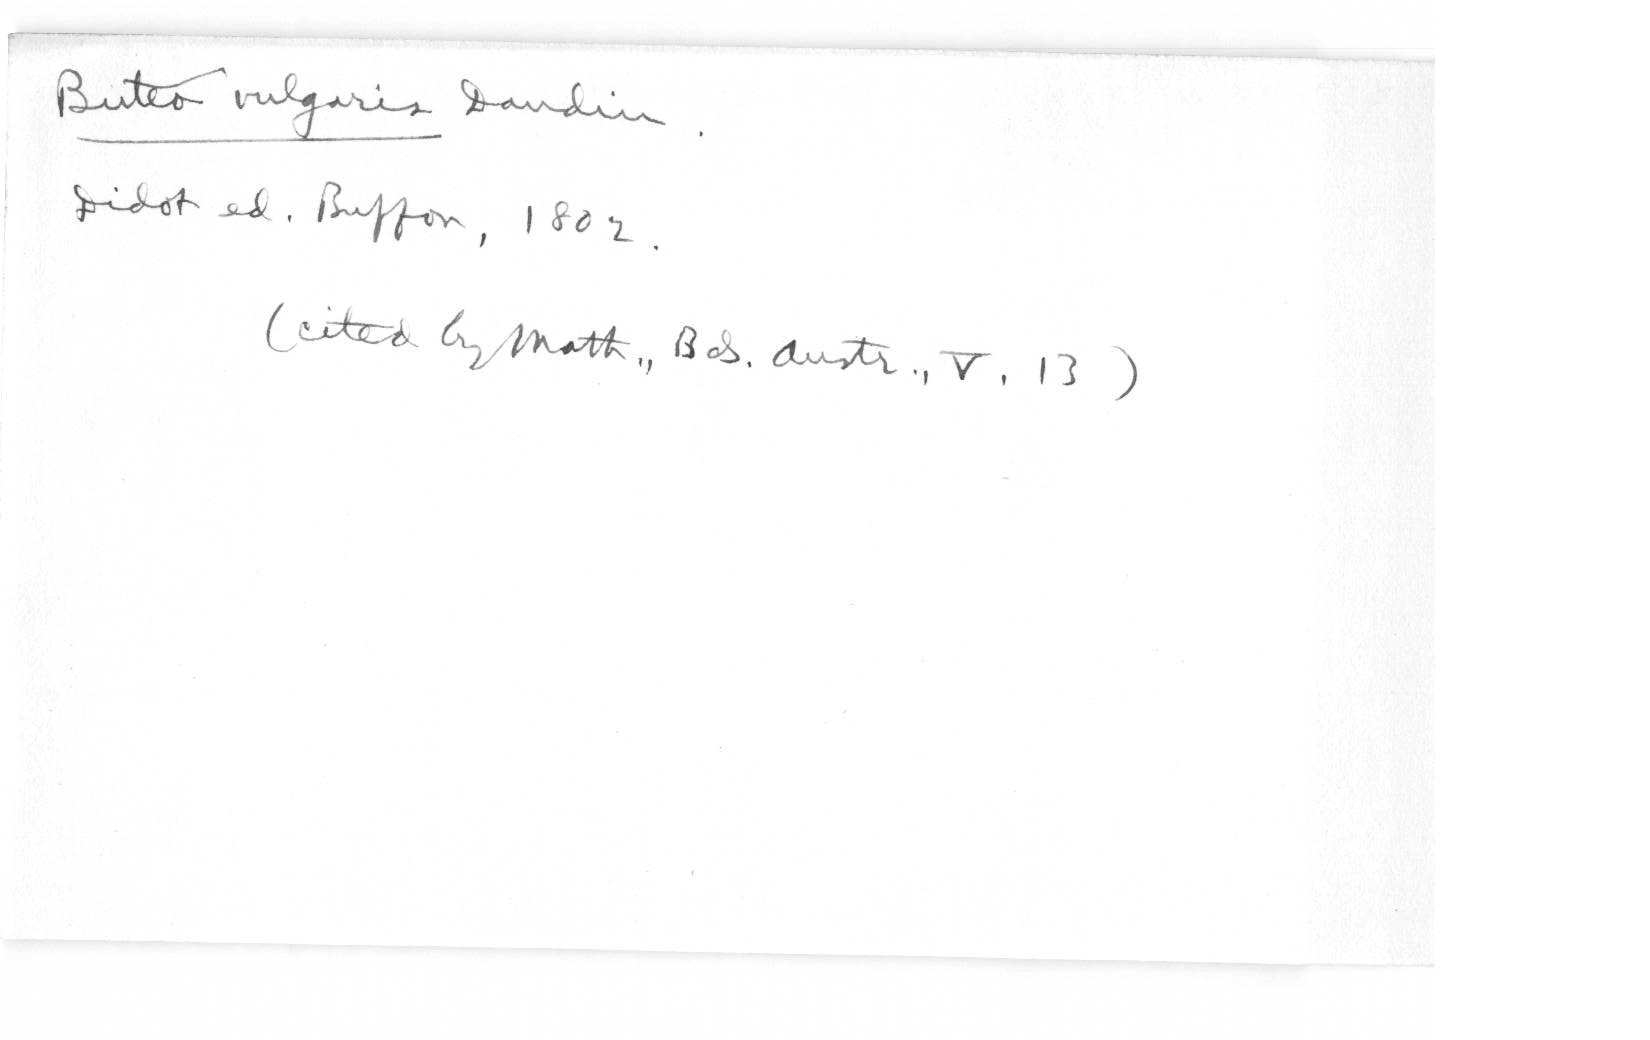 Buteo vulgaris Daudin.
Didot ed. Buffon, 1802.
(cited by Math., Bds. Austr., V, 13)